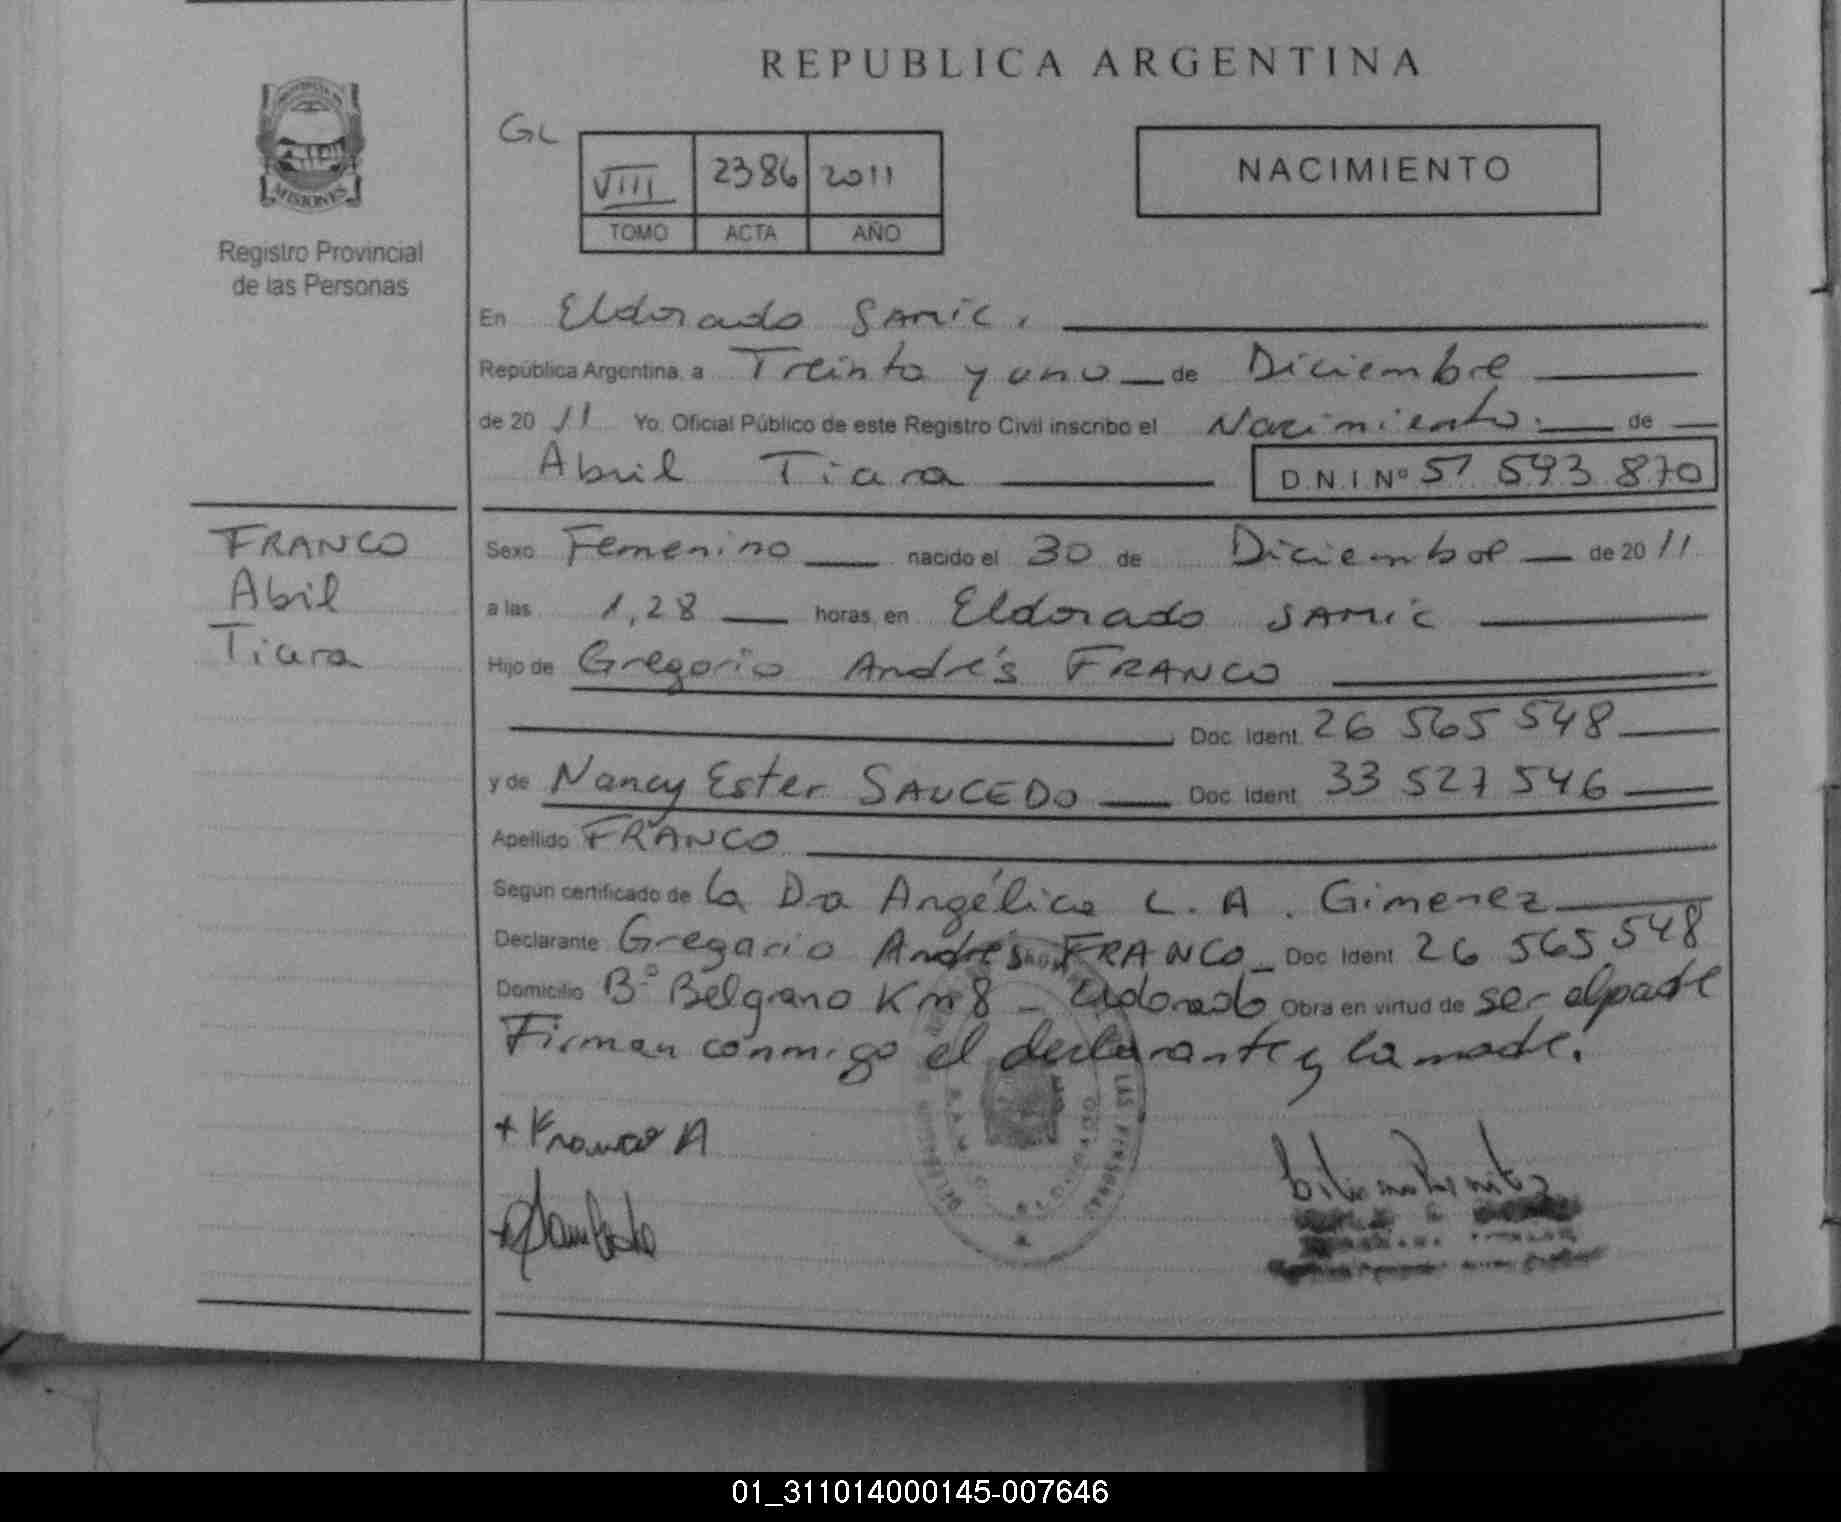 REPUBLICA ARGENTINA
MISIONES
Registro Provincial
de las Personas
GL
VIII 2386 2011
TOMO ACTA AÑO
NACIMIENTO
En Eldorado SAMIC.
República Argentina, a Treinta y uno de Diciembre
de 20 11 Yo, Oficial Público de este Registro Civil inscribo el Nacimiento. de
Abril Tiara D.N.I. Nº 51 593 870
FRANCO
Abil
Tiara
Sexo Femenino nacido el 30 de Diciembre de 20 11
a las 1,28 horas, en Eldorado SAMIC
Hijo de Gregorio Andrés FRANCO
Doc. Ident. 26 565 548
y de Nancy Ester SAUCEDO Doc. Ident. 33 527 546
Apellido FRANCO
Según certificado de la Dra Angélica L. A. Gimenez
Declarante Gregorio Andrés FRANCO Doc. Ident. 26 565 548
Domicilio Bº Belgrano Km 8 - Eldorado Obra en virtud de ser el padre
Firman conmigo el declarante y la madre.
+ Franco A
LAS PERSONAS
01_311014000145-007646